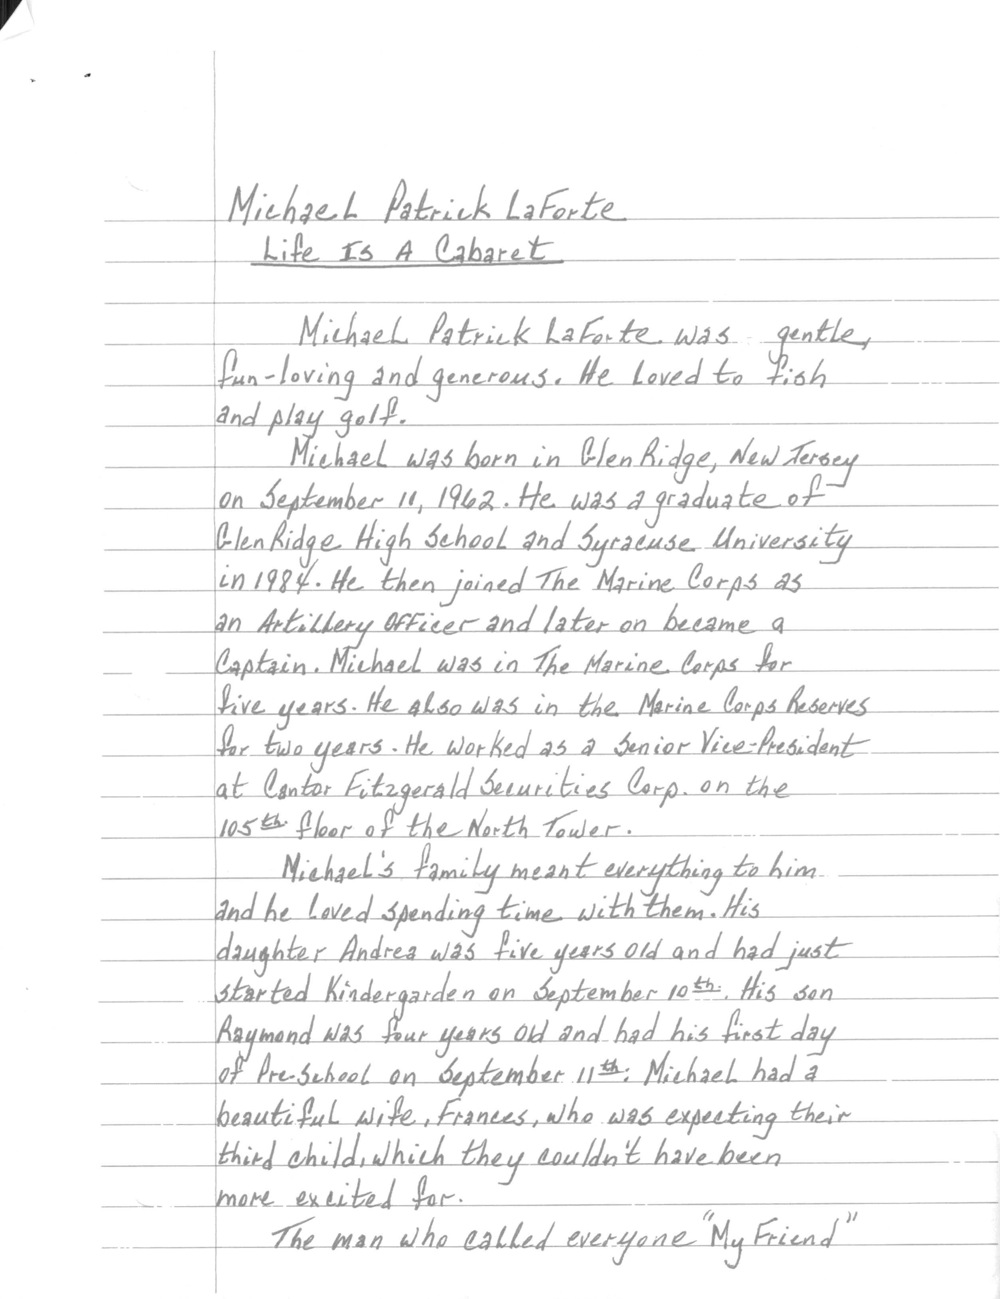 Michael Patrick LaForte
Life Is A Cabaret
Michael Patrick LaForte was gentle,
fun-loving and generous. He loved to fish
and play golf.
Michael was born in Glen Ridge, New Jersey
on September 11, 1962. He was a graduate of
Glen Ridge High School and Syracuse University
in 1984. He then joined The Marine Corps as
an Artillery Officer and later on became a
Captain. Michael was in The Marine Corps for
five years. He also was in the Marine Corps Reserves
for two years. He worked as a Senior Vice-President
at Cantor Fitzgerald Securities Corp. on the
105th floor of the North Tower.
Michael's family meant everything to him
and he loved spending time with them. His
daughter Andrea was five years old and had just
started Kindergarden on September 10th. His son
Raymond was four years old and had his first day
of Pre-School on September 11th. Michael had a
beautiful wife, Frances, who was expecting their
third child, which they couldn't have been
more excited for.
The man who called everyone "My Friend"